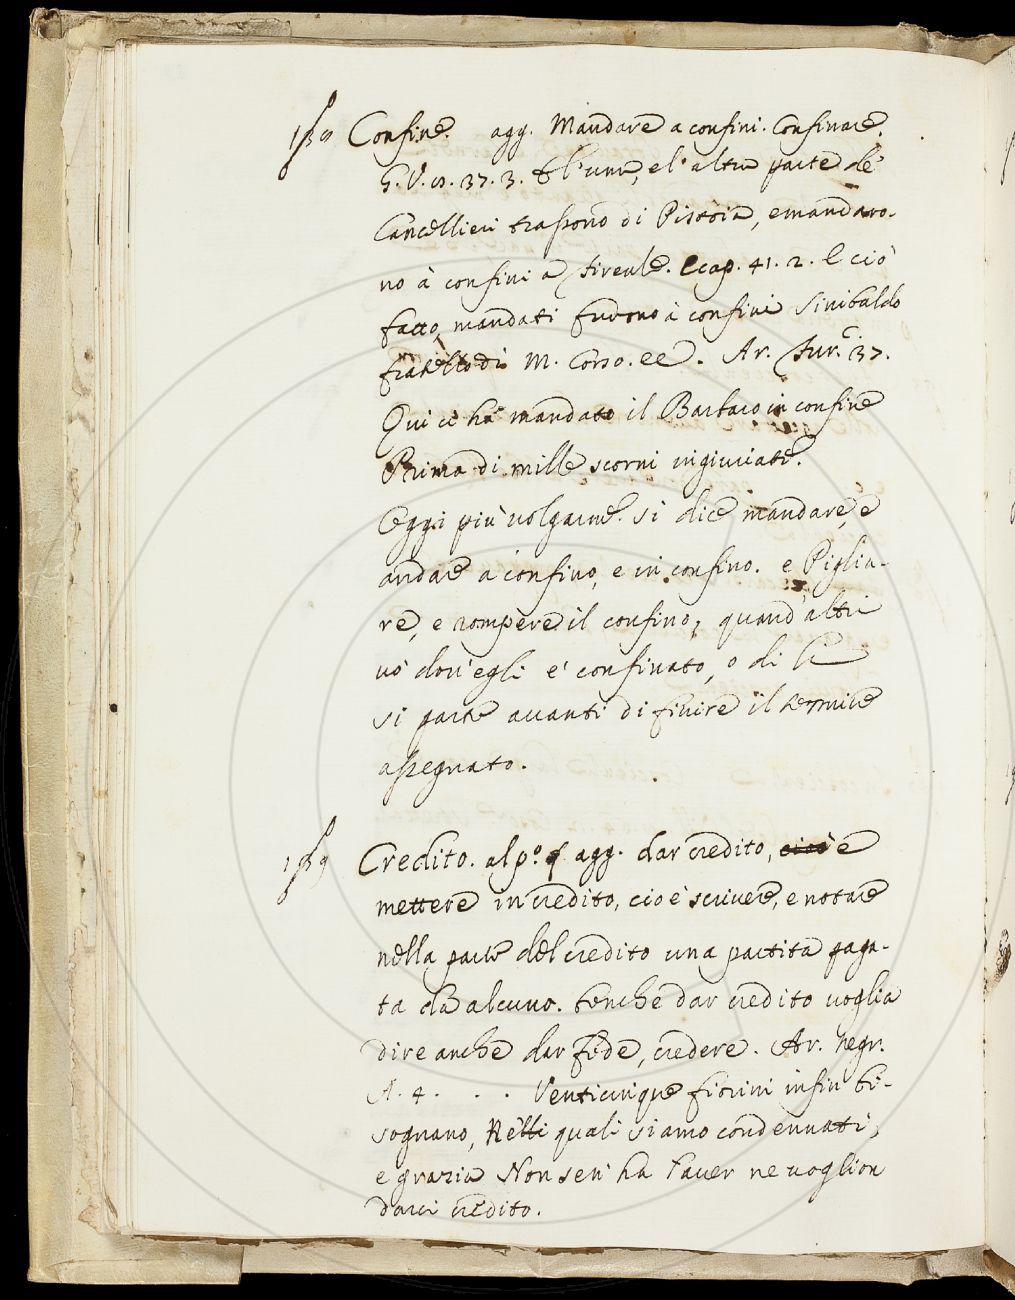 Confine. agg. Mandare a confini. Confinare.
G. V. 37. 3. E l'una, e l'altra parte de'
Cancellieri trassono di Pistoia, e mandaro-
no à confini a Firenze. E cap. 41. 2. E ciò
fatto, mandati furono à confini Sinibaldo
fratello di M. Corso. ec. Ar. Fur. 37.
Qui ci hà mandato il Barbaro in confine
Prima di mille scorni ingiuriate.
Oggi più volgarm. si dice mandare, e
andare a confino, e in confino. e Piglia-
re, e rompere il confino, quand'altri
và dov'egli è confinato, o di lì
si parte avanti di finire il termine
assegnato.
Credito. al p.º § agg. dar credito, cioè e
mettere in credito, cioè scrivere, e notare
nella parte del credito una partita paga-
ta da alcuno. benche dar credito voglia
dire anche dar fede, credere. Ar. Negr.
A. 4. . . . Venticinque fiorini infin bi-
sognano, Nelli quali siamo condennati,
e grazia Non sen' ha l'aver ne voglion
darci credito.